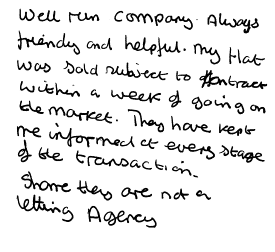 Well run company. Always
friendly and helpful. My flat
was sold subject to contract
within a week of going on
the market. They have kept
me informed at every stage
of the transaction.
Shame they are not a
letting Agency